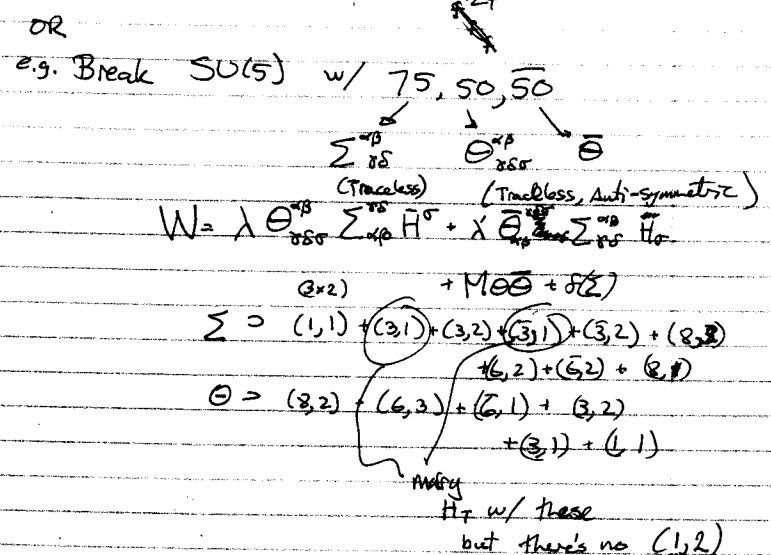 OR
e.g. Break SU(5) w/ 75, 50, 5̅0̅
Σ^{αβ}_{γδ} Θ^{αβ}_{γδσ} Θ̅
(Traceless) (Traceless, Anti-symmetric)
W = λ Θ^{αβ}_{γδσ} Σ^{γδ}_{αβ} H̅^σ + λ' Θ̅ Σ^{αβ}_{γδ} H_σ
(3×2) + MΘΘ̅ + f(Σ)
Σ ⊃ (1,1) + (3,1) + (3,2) + (3̅,1) + (3̅,2) + (8,3)
+(6,2) + (6̅,2) + (8,1)
Θ ⊃ (8,2) + (6,3) + (6̅,1) + (3,2)
+ (3̅,1) + (1,1)
marry
H_T w/ these
but there's no (1,2)